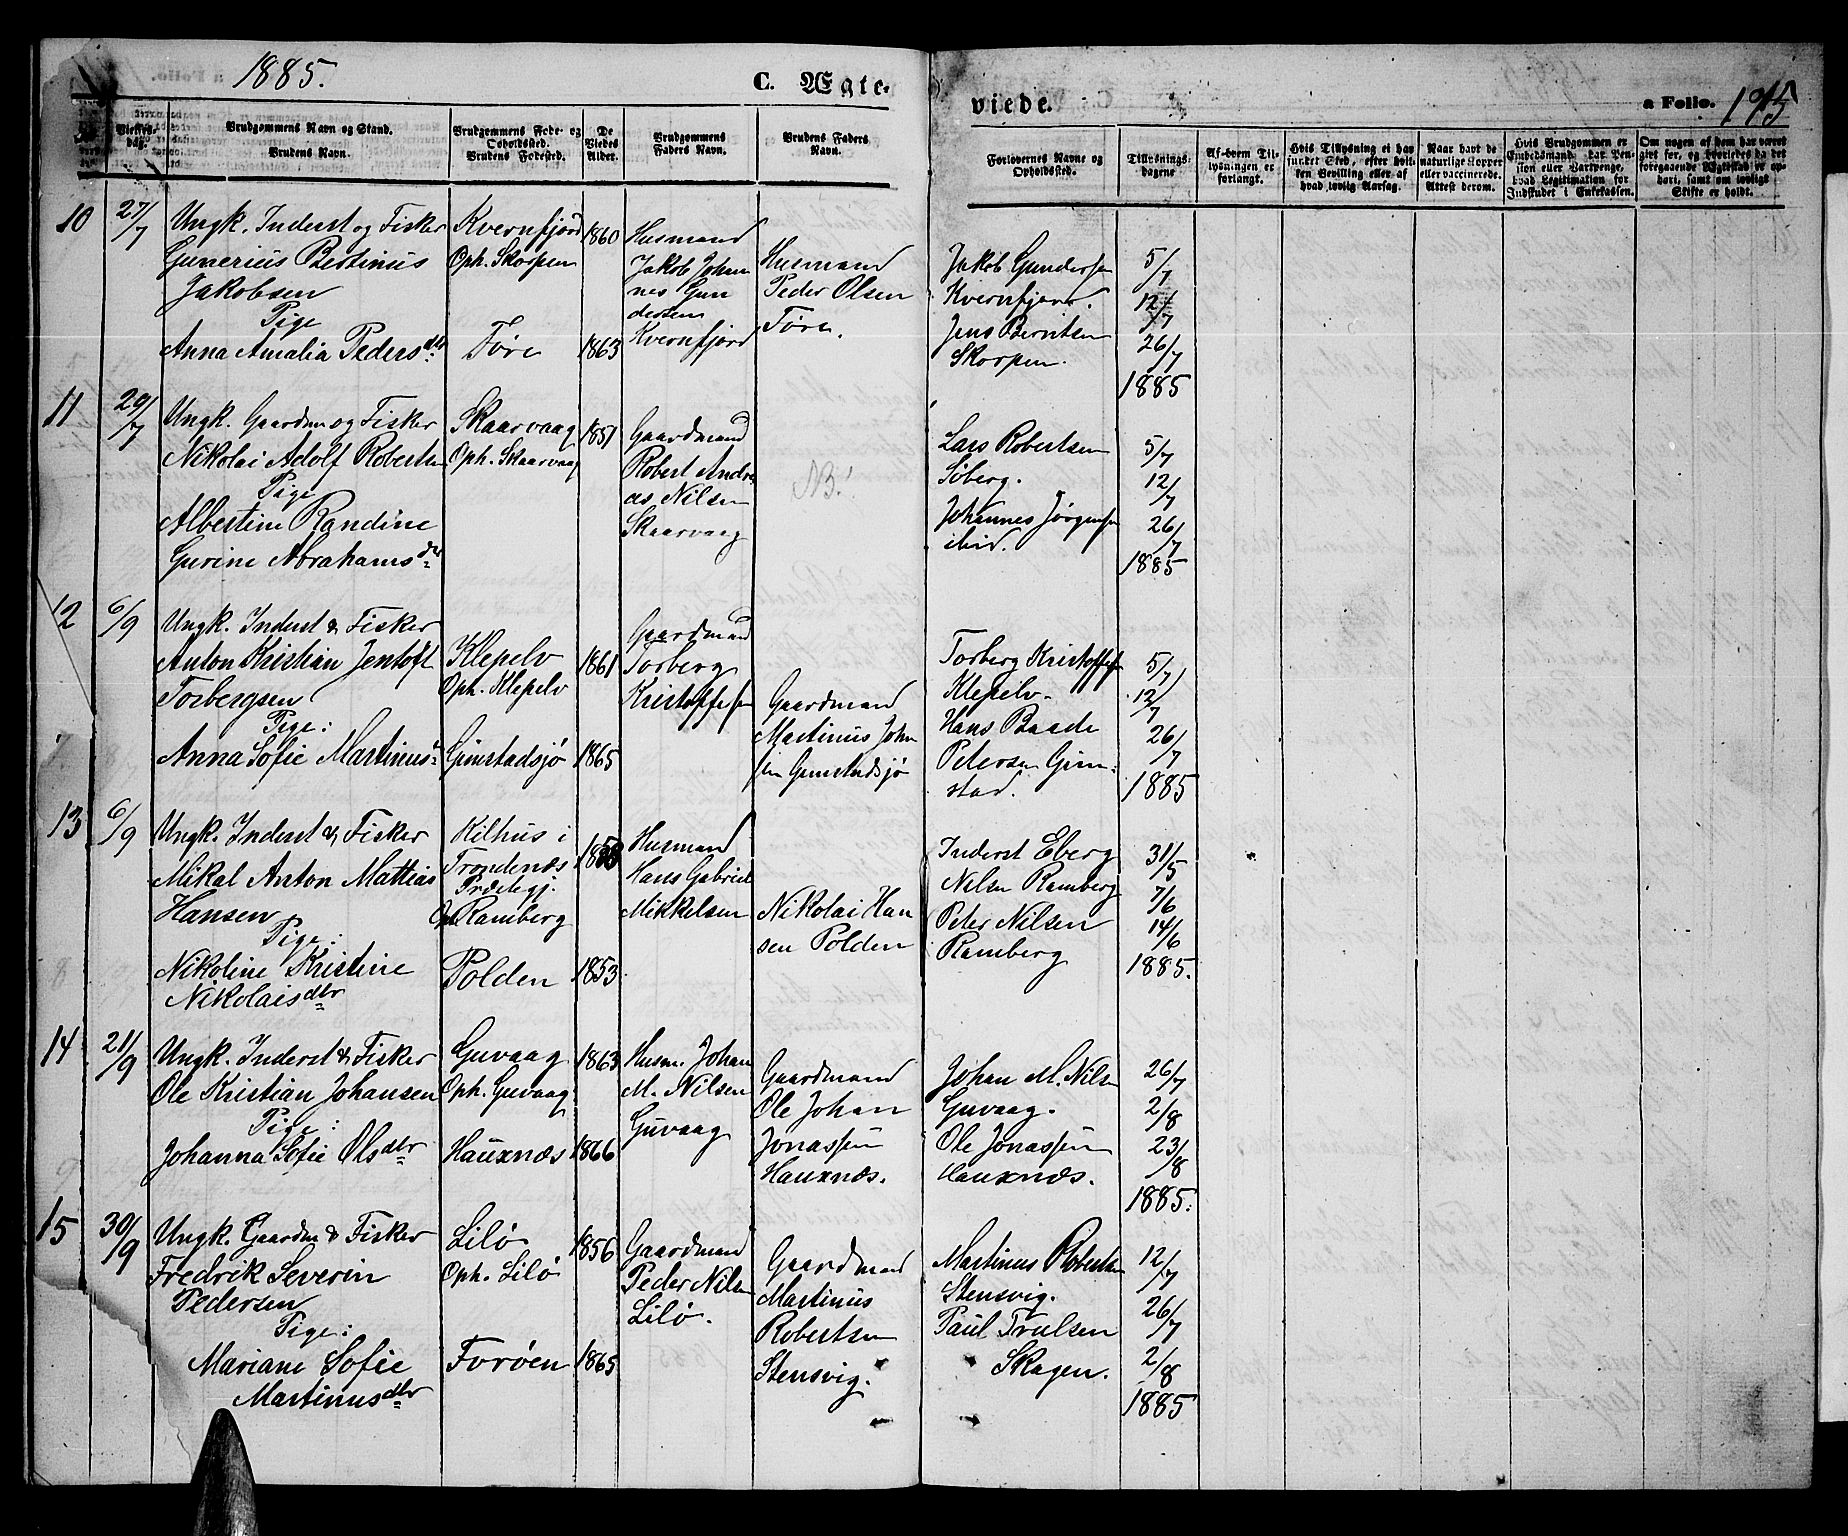 1885.
C. Ægte-
viede.
a Folio. 195
Vielses-
dag.
Brudgommens Navn og Stand.
Brudens Navn.
Brudgommens Føde- og
Opholdssted.
Brudens Fødested.
De
Viedes
Alder.
Brudgommens
Faders Navn.
Brudens Faders
Navn.
Forlovernes Navne og
Opholdssted.
Tillysnings-
dagene
Af hvem Til-
lysningen er
forlangt.
Hvis Tillysning ei har
fundet Sted, efter hvil-
ken Bevilling eller af
hvad lovlig Aarsag.
Naar havt de
naturlige Kopper
eller vaccinerede.
Attest derom.
Hvis Brudgommen er
Embedsmand, har Pen-
sion eller Vartpenge,
hvad Legitimation for
Indskudet i Enkekassen.
Om nogen af dem har været
gift før, og hvorledes da det
foregaaende Ægteskab er op-
hævt, samt om lovligt
Skifte er holdt.
10
27/7
Ungk. Inderst og Fisker
Gunerius Bertinus
Jakobsen
Pige
Anna Amalia Pedersdtr
Kvernfjord
Oph. Skorpen
Føre
1860
1863
Husmand
Jakob Johan
nes Gun
dersen
Kvernfjord
Husmand
Peder Olsen
Føre.
Jakob Gundersen
Kvernfjord.
Jens Berntsen
Skorpen.
5/7
12/7
26/7
1885
11
29/7
Ungk. Gaardm og Fisker
Nikolai Adolf Robertsen
Pige
Albertine Randine
Gurine Abrahamsdtr
Skaarvaag
Oph. Skaarvaag
1851
Gaardmand
Robert Andre
as Nilsen
Skaarvaag
NB!
Lars Robertsen
Søberg.
Johannes Jørgensen
ibid.
5/7
12/7
26/7
1885
12
6/9
Ungk. Inderst & Fisker
Anton Kristian Jentoft
Torbergsen
Pige:
Anna Sofie Martinusd
Klepelv
Oph. Klepelv
Gimstadsjø
1861
1865
Gaardmand
Torberg
Kristoffesen
Gaardmand
Martinus Johan
sen Gimstadsjø
Torberg Kristoffesen
Klepelv.
Hans Baade
Petersen Gim-
stad.
5/7
12/7
26/7
1885
13
6/9
Ungk. Inderst & Fisker
Mikal Anton Mattias
Hansen
Pige:
Nikoline Kristine
Nikolaisdtr
Kilhus i
Trondenæs
Præstegj.
Oph Ramberg
Polden
1853
Husmand
Hans Gabriel
Mikkelsen
Nikolai Han
sen Polden
Inderst Eberg
Nilsen Ramberg
Peter Nilsen
Ramberg
31/5
7/6
14/6
1885.
14
21/9
Ungk. Inderst & Fisker
Ole Kristian Johansen
Pige:
Johanna Sofie Olsdtr
Guvaag
Oph. Guvaag
Hauxnæs
1863
1866
Husm. Johan
M. Nilsen
Guvaag
Gaardmand
Ole Johan
Jonassen
Hauxnæs.
Johan M. Nilsen
Guvaag.
Ole Jonassen
Hauxnæs.
26/7
2/8
23/8
1885.
15
30/9
Ungk. Gaardm & Fisker
Fredrik Severin
Pedersen
Pige:
Mariane Sofie
Martinusdtr
Lilø
Oph. Lilø
Forøen
1856
1865
Gaardmand
Peder Nilsen
Lilø.
Gaardmand
Martinus
Robertsen
Stensvig.
Martinus Robertsen
Stensvig.
Paul Trulsen
Skagen.
12/7
26/7
2/8
1885